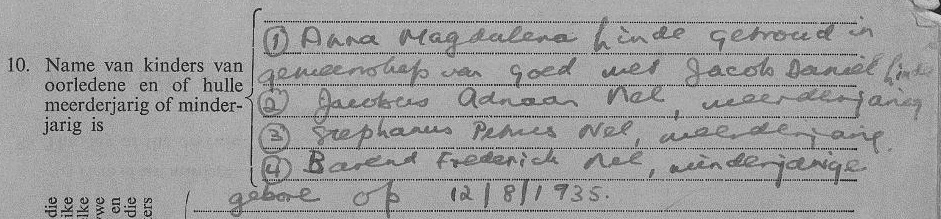 10. Name van kinders van
oorledene en of hulle
meerderjarig of minder-
jarig is
① Anna Magdalena Linde getroud in
gemeenskap van goed met Jacob Daniel Linde
② Jacobus Adriaan Nel, meerderjarig
③ Stephanus Petrus Nel, meerderjarig.
④ Barend Frederick Nel, minderjarige
gebore op 12/8/1935.
die
ike
lke
we
en
die
ers